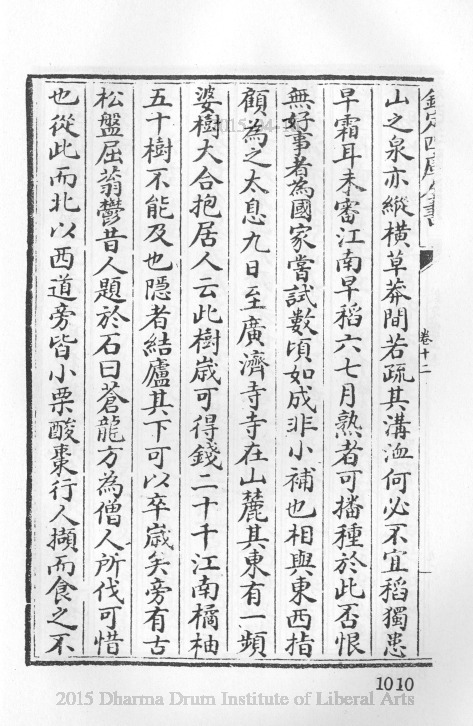 欽定四庫全書
卷十二
山之泉亦縱橫草莽間若疏其溝洫何必不宜稻獨患
早霜耳未審江南早稻六七月熟者可播種於此否恨
無好事者為國家嘗試數頃如成非小補也相與東西指
顧為之太息九日至廣濟寺寺在山麓其東有一頻
婆樹大合抱居人云此樹歲可得錢二十千江南橘柚
五十樹不能及也隱者結廬其下可以卒歲矣旁有古
松盤屈蓊鬱昔人題於石曰蒼龍方為僧人所伐可惜
也從此而北以西道旁皆小栗酸棗行人擷而食之不
1010
2015 Dharma Drum Institute of Liberal Arts